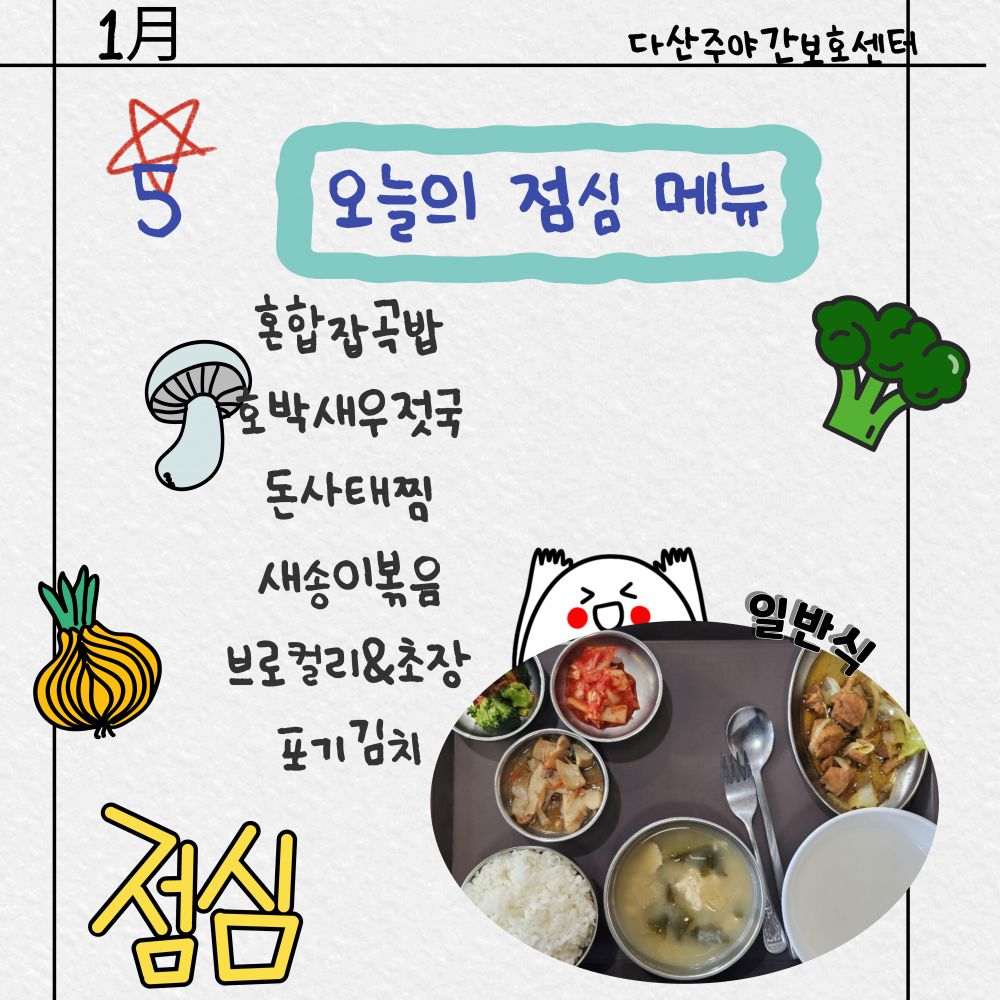 1月
다산주야간보호센터
5
오늘의 점심 메뉴
혼합잡곡밥
호박새우젓국
돈사태찜
새송이볶음
브로컬리&초장
포기김치
일반식
점심